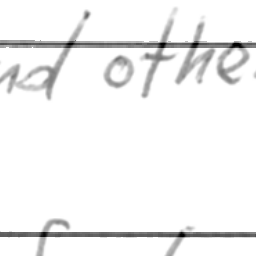 nd othe